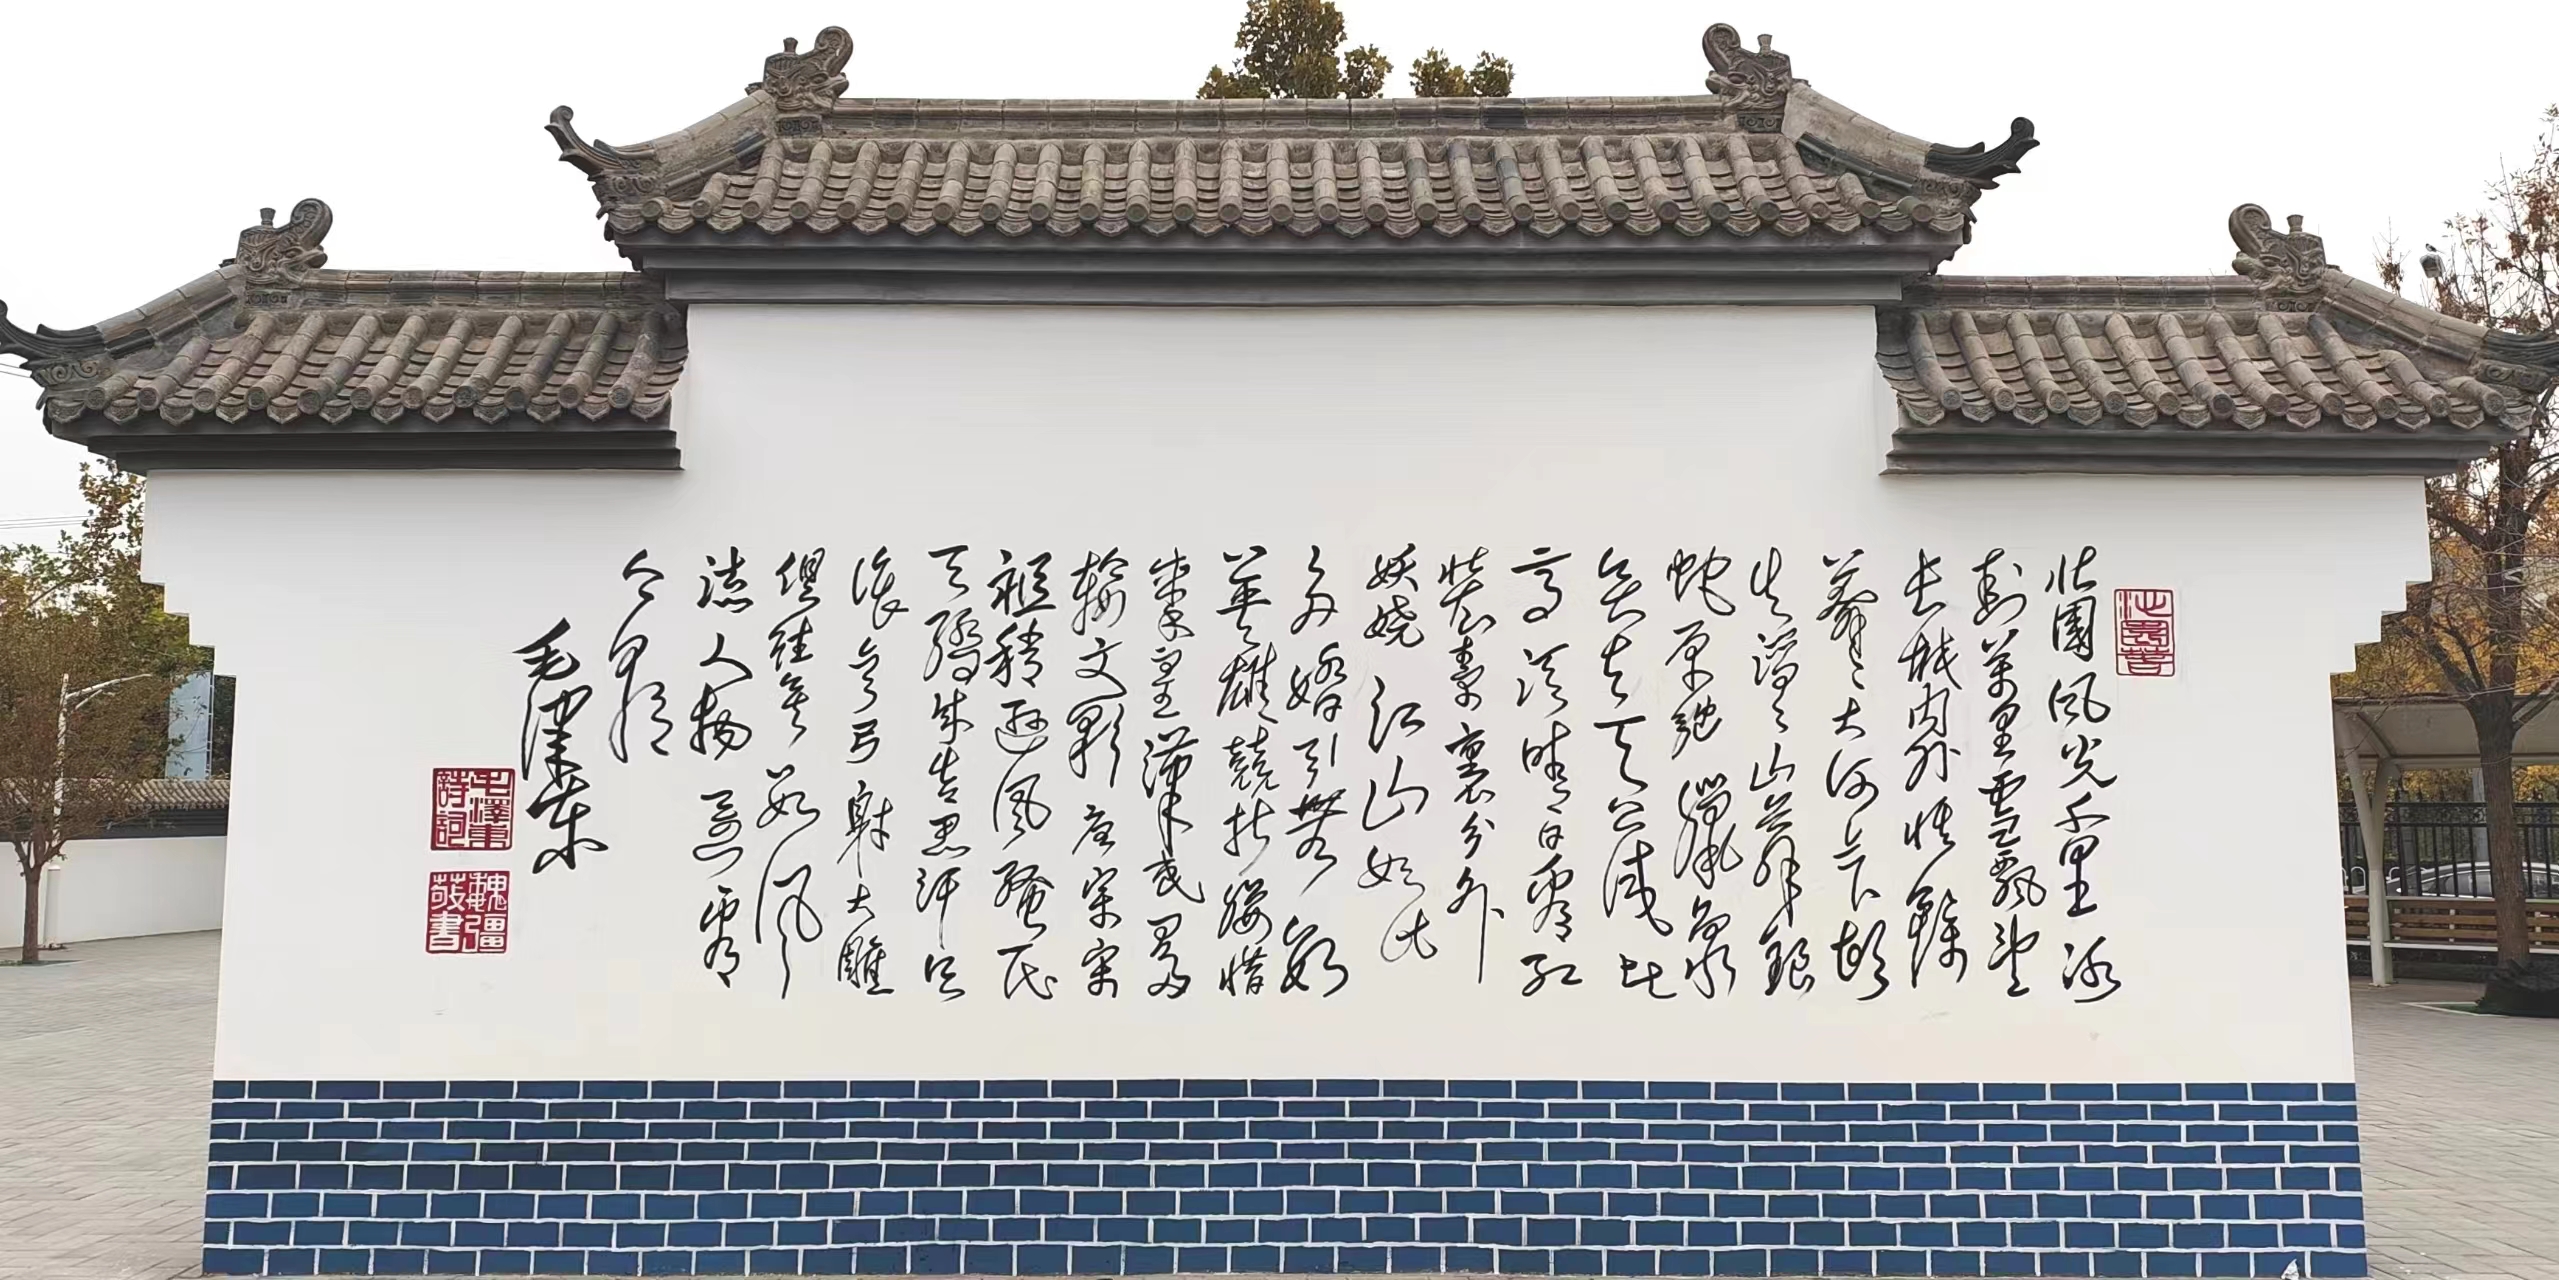 沁園春
北國風光千里冰
封萬里雪飄望
長城内外惟餘
莽莽大河上下頓
失滔滔山舞銀
蛇原馳臘象
欲與天公試比
高須晴日看紅
裝素裹分外
妖嬈江山如此
多嬌引無數
英雄競折腰惜
秦皇漢武略
輸文彩唐宗宋
祖稍遜風騷一代
天驕成吉思汗只
識彎弓射大雕
俱往矣數風
流人物還看
今朝
毛澤東
毛澤東詩詞
魏疆敬書